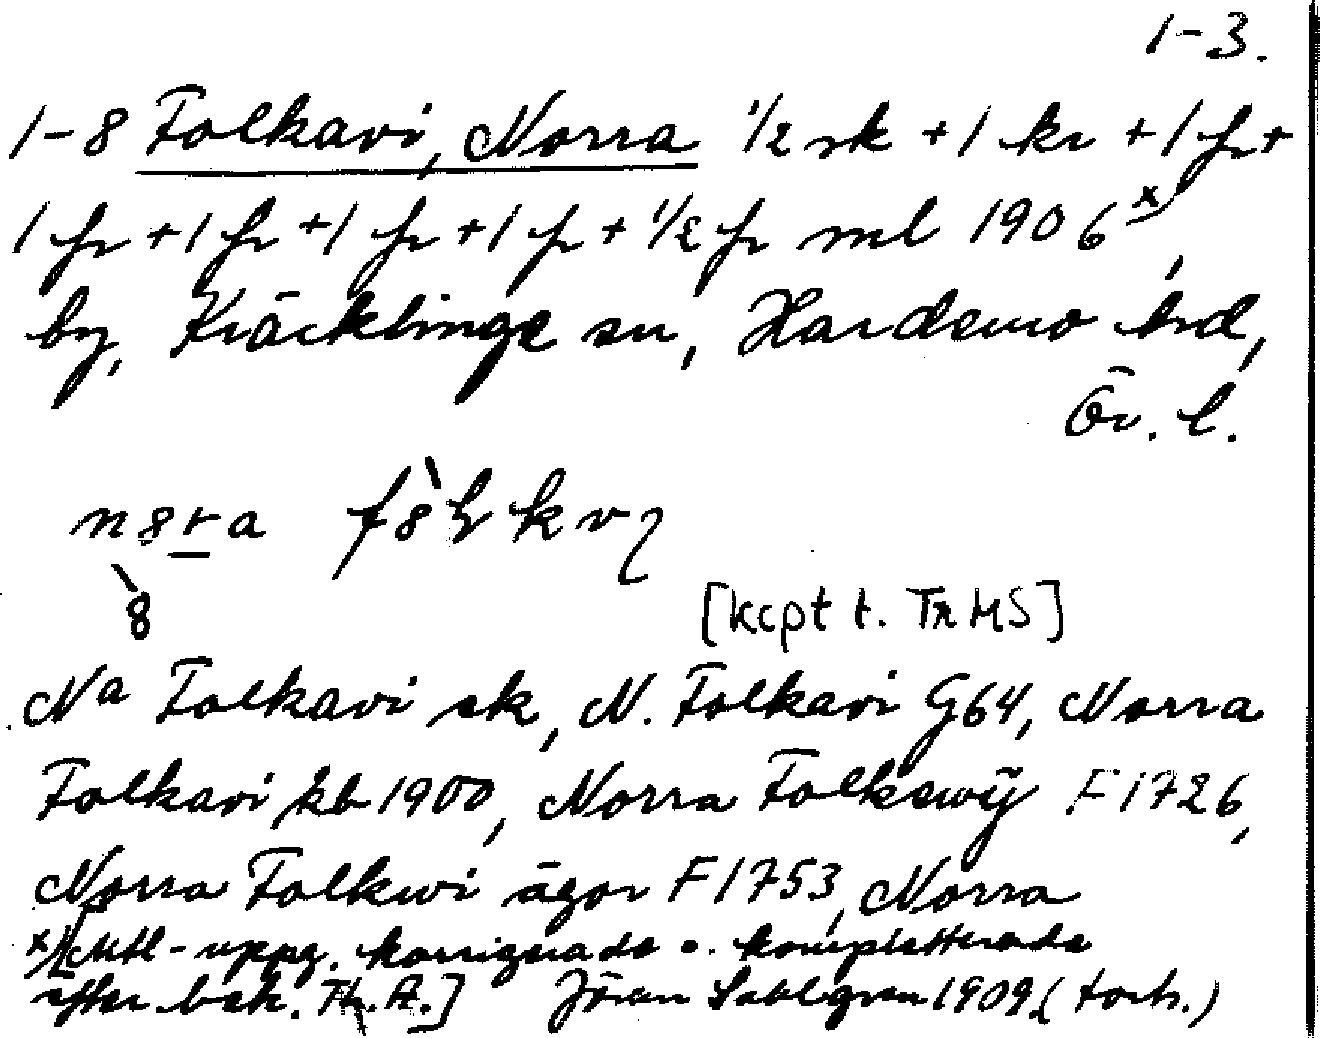 1-3.
1-8 Folkavi, Norra 1/2 sk + 1 kr + 1 fr +
1 fr + 1 fr + 1 fr + 1 fr + 1/2 fr ml 1906x,
by, Kräcklinge sn, Hardemo hrd,
Ör. l.
[kcpt t. TR MS]
Na Folkavi sk, N. Folkavi G64, Norra
Folkavi kb 1900, Norra Folkewÿ F 1726,
Norra Folkwi ägor F 1753, Norra
x/[Mtl-uppg. korrigerade o. kompletterade
efter bek. Th. A.] Jöran Sahlgren 1909 (tork.)